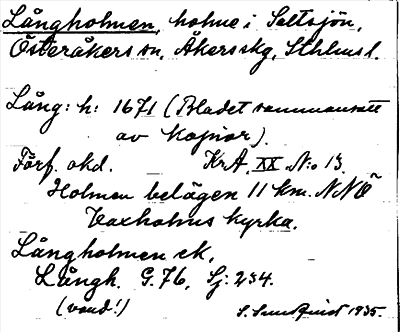 Långholmen, holme i Saltsjön,
Österåkers sn, Åkers skg, Sthlms l.
Lång: h: 1671 (Bladet sammansatt
av kopior).
Förf. okd. KrA. XX N:o 13.
Holmen belägen 11 km. NNÖ
Vaxholms kyrka.
Långholmen ek.
Långh. G. 76, Sj: 234.
(vard!)
S. Sundquist 1935.